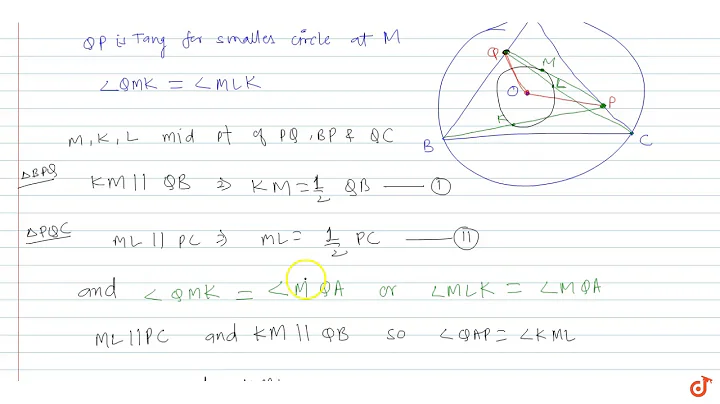 QP is Tang for smalles circle at M
∠QMK = ∠MLK
M, K, L mid pt of PQ, BP & QC
△BPQ KM || QB ⇒ KM = 1/2 QB —— I
△PQC ML || PC ⇒ ML = 1/2 PC —— II
and ∠QMK = ∠MQA or ∠MLK = ∠MQA
ML||PC and KM || QB so ∠QAP = ∠KML
Q
M
L
O
P
K
B
C